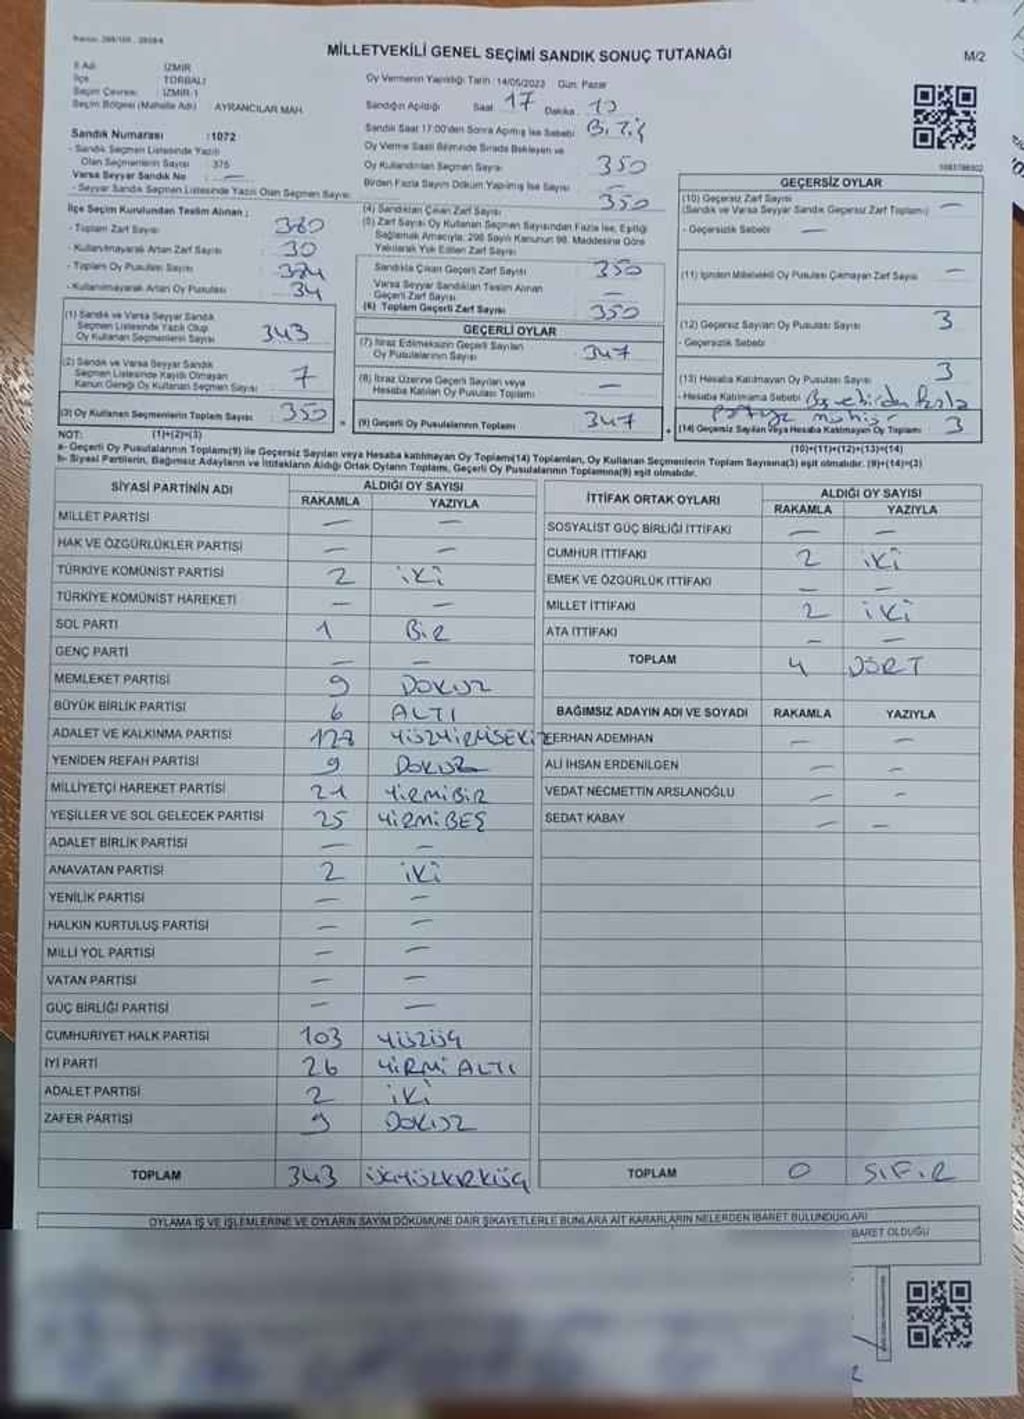 MİLLETVEKİLİ GENEL SEÇİMİ SANDIK SONUÇ TUTANAĞI
M/2
İl Adı : İZMİR
İlçe : TORBALI
Seçim Çevresi : İZMİR-1
Seçim Bölgesi (Mahalle Adı) : AYRANCILAR MAH.
Sandık Numarası : 1072
- Sandık Seçmen Listesinde Yazılı
Olan Seçmenlerin Sayısı : 376
Varsa Seyyar Sandık No
- Seyyar Sandık Seçmen Listesinde Yazılı Olan Seçmen Sayısı:
Oy Vermenin Yapıldığı Tarih : 14/05/2023 Gün: Pazar
Sandığın Açıldığı Saat 17 Dakika
Sandık Saat 17:00'den Sonra Açılmış İse Sebebi
Oy Verme Saati Bitiminde Sırada Bekleyen ve
Oy Kullandırılan Seçmen Sayısı 350
Birden Fazla Sayım Döküm Yapılmış İse Sayısı —
İlçe Seçim Kurulundan Teslim Alınan :
- Toplam Zarf Sayısı 380
- Kullanılmayarak Artan Zarf Sayısı 30
- Toplam Oy Pusulası Sayısı
- Kullanılmayarak Artan Oy Pusulası 34
(1) Sandık ve Varsa Seyyar Sandık
Seçmen Listesinde Yazılı Olup
Oy Kullanan Seçmenlerin Sayısı 343
(2) Sandık ve Varsa Seyyar Sandık
Seçmen Listesinde Kayıtlı Olmayan
Kanun Gereği Oy Kullanan Seçmen Sayısı 7
(3) Oy Kullanan Seçmenlerin Toplam Sayısı 350
(1)+(2)=(3)
(4) Sandıktan Çıkan Zarf Sayısı 350
(5) Zarf Sayısı Oy Kullanan Seçmen Sayısından Fazla İse, Eşitliği
Sağlamak Amacıyla; 298 Sayılı Kanunun 98. Maddesine Göre
Yakılarak Yok Edilen Zarf Sayısı
Sandıkta Çıkan Geçerli Zarf Sayısı 350
Varsa Seyyar Sandıktan Teslim Alınan
Geçerli Zarf Sayısı —
(6) Toplam Geçerli Zarf Sayısı 350
GEÇERLİ OYLAR
(7) İtiraz Edilmeksizin Geçerli Sayılan
Oy Pusulalarının Sayısı 347
(8) İtiraz Üzerine Geçerli Sayılan veya
Hesaba Katılan Oy Pusulası Toplamı —
(9) Geçerli Oy Pusulalarının Toplamı 347
GEÇERSİZ OYLAR
(10) Geçersiz Zarf Sayısı —
(Sandık ve Varsa Seyyar Sandık Geçersiz Zarf Toplamı)
- Geçersizlik Sebebi —
(11) İçinden Milletvekili Oy Pusulası Çıkmayan Zarf Sayısı —
(12) Geçersiz Sayılan Oy Pusulası Sayısı 3
- Geçersizlik Sebebi
(13) Hesaba Katılmayan Oy Pusulası Sayısı 3
- Hesaba Katılmama Sebebi
(14) Geçersiz Sayılan veya Hesaba Katılmayan Oy Toplamı 3
(10)+(11)+(12)+(13)=(14)
NOT:
a- Geçerli Oy Pusulalarının Toplamı(9) ile Geçersiz Sayılan veya Hesaba katılmayan Oy Toplamı(14) Toplamları, Oy Kullanan Seçmenlerin Toplam Sayısına(3) eşit olmalıdır. (9)+(14)=(3)
b- Siyasi Partilerin, Bağımsız Adayların ve İttifakların Aldığı Ortak Oyların Toplamı, Geçerli Oy Pusulalarının Toplamına(9) eşit olmalıdır.
SİYASİ PARTİNİN ADI ALDIĞI OY SAYISI
RAKAMLA YAZIYLA
MİLLET PARTİSİ — —
HAK VE ÖZGÜRLÜKLER PARTİSİ — —
TÜRKİYE KOMÜNİST PARTİSİ 2 iKi
TÜRKİYE KOMÜNİST HAREKETİ — —
SOL PARTİ 1 BiR
GENÇ PARTİ — —
MEMLEKET PARTİSİ 9 DOKUZ
BÜYÜK BİRLİK PARTİSİ 6 ALTI
ADALET VE KALKINMA PARTİSİ 128 YÜZYİRMİSEKİZ
YENİDEN REFAH PARTİSİ 9 DOKUZ
MİLLİYETÇİ HAREKET PARTİSİ 21 YiRMiBiR
YEŞİLLER VE SOL GELECEK PARTİSİ 25 YiRMiBEŞ
ADALET BİRLİK PARTİSİ — —
ANAVATAN PARTİSİ 2 iKi
YENİLİK PARTİSİ — —
HALKIN KURTULUŞ PARTİSİ — —
MİLLİ YOL PARTİSİ — —
VATAN PARTİSİ — —
GÜÇ BİRLİĞİ PARTİSİ — —
CUMHURİYET HALK PARTİSİ 103 YÜZÜÇ
İYİ PARTİ 26 YiRMi ALTI
ADALET PARTİSİ 2 iKi
ZAFER PARTİSİ 9 DOKUZ
TOPLAM 343 ÜÇYÜZKIRKÜÇ
İTTİFAK ORTAK OYLARI ALDIĞI OY SAYISI
RAKAMLA YAZIYLA
SOSYALİST GÜÇ BİRLİĞİ İTTİFAKI — —
CUMHUR İTTİFAKI 2 iKi
EMEK VE ÖZGÜRLÜK İTTİFAKI — —
MİLLET İTTİFAKI 2 iKi
ATA İTTİFAKI — —
TOPLAM 4 DÖRT
BAĞIMSIZ ADAYIN ADI VE SOYADI RAKAMLA YAZIYLA
FERHAN ADEMHAN — —
ALİ İHSAN ERDENİLGEN — —
VEDAT NECMETTİN ARSLANOĞLU — —
SEDAT KABAY — —
TOPLAM 0 SIFIR
OYLAMA İŞ VE İŞLEMLERİNE VE OYLARIN SAYIM DÖKÜMÜNE DAİR ŞİKAYETLERLE BUNLARA AİT KARARLARIN NELERDEN İBARET BULUNDUKLARI
İBARET OLDUĞU